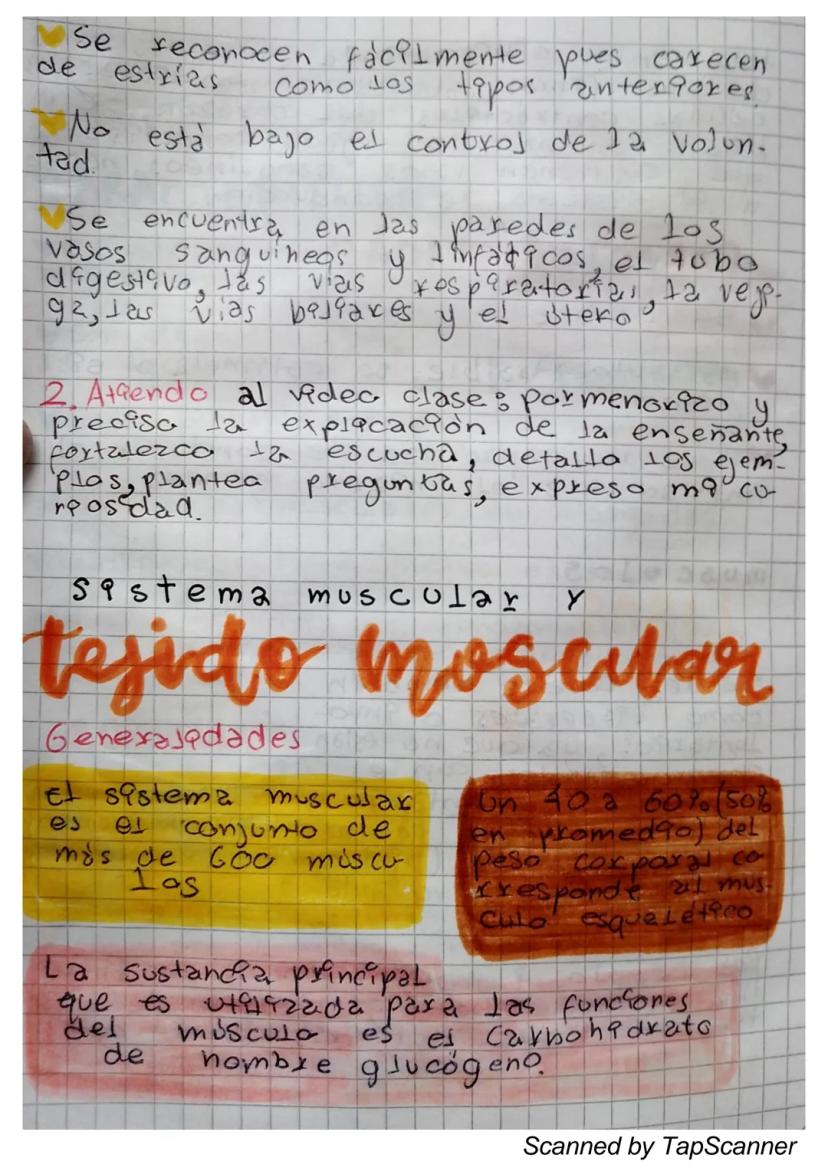 Se reconocen fácilmente pues carecen
de estrías como los tipos anteriores.
No está bajo el control de la volun-
tad.
Se encuentra en las paredes de los
vasos sanguíneos y linfáticos, el tubo
digestivo, las vias respiratorias, la veji-
ga, las vias biliares y el útero
2. Atiendo al video clase: pormenorizo y
preciso la explicación de la enseñante,
fortalezco la escucha, detallo los ejem-
plos, plantea preguntas, expreso mi cu-
riosidad.
sistema muscular y
tejido moscular
Generalidades
El sistema muscular
es el conjunto de
más de 600 múscu
los
Un 40 a 60% (50%
en promedio) del
peso corporal co
rresponde al mus-
culo esquelético
La sustancia principal
que es utilizada para las funciones
del músculo es el carbohidrato
de nombre glucógeno.
Scanned by TapScanner